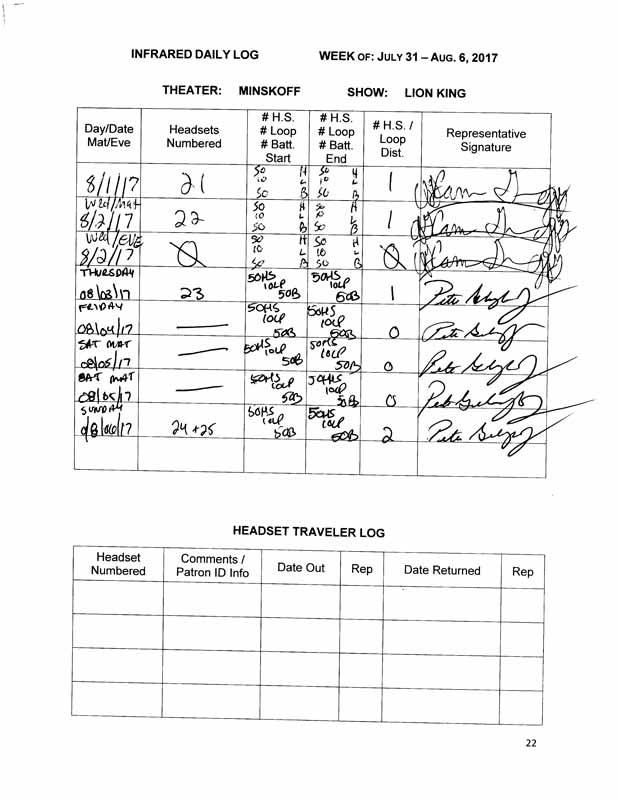 INFRARED DAILY LOG WEEK OF: JULY 31 – AUG. 6, 2017
THEATER: MINSKOFF SHOW: LION KING
Day/Date Mat/Eve Headsets Numbered # H.S. # Loop # Batt. Start # H.S. # Loop # Batt. End # H.S. / Loop Dist. Representative Signature
8/1/17 21 50 H 10 L 50 B 50 H 10 L 50 B 1
Wed/Mat
8/2/17 22 50 H 10 L 50 B 50 H L B 1
Wed/EVE
8/2/17 0 50 H 10 L 50 B 50 H 10 L 50 B 0
THURSDAY
08/03/17 23 50HS 10LP 50B 50HS 10LP 50B 1 Pete
FRIDAY
08/04/17 — 50HS 10LP 50B 50HS 10LP 50B 0 Pete
SAT MAT
08/05/17 — 50HS 10LP 50B 50HS 10LP 50B 0 Pete
SAT MAT
08/05/17 — 50HS 10LP 50B 50HS 10LP 50B 0
SUNDAY
08/06/17 24+25 50HS 10LP 50B 50HS 10LP 50B 2 Pete
HEADSET TRAVELER LOG
Headset Numbered Comments / Patron ID Info Date Out Rep Date Returned Rep
22